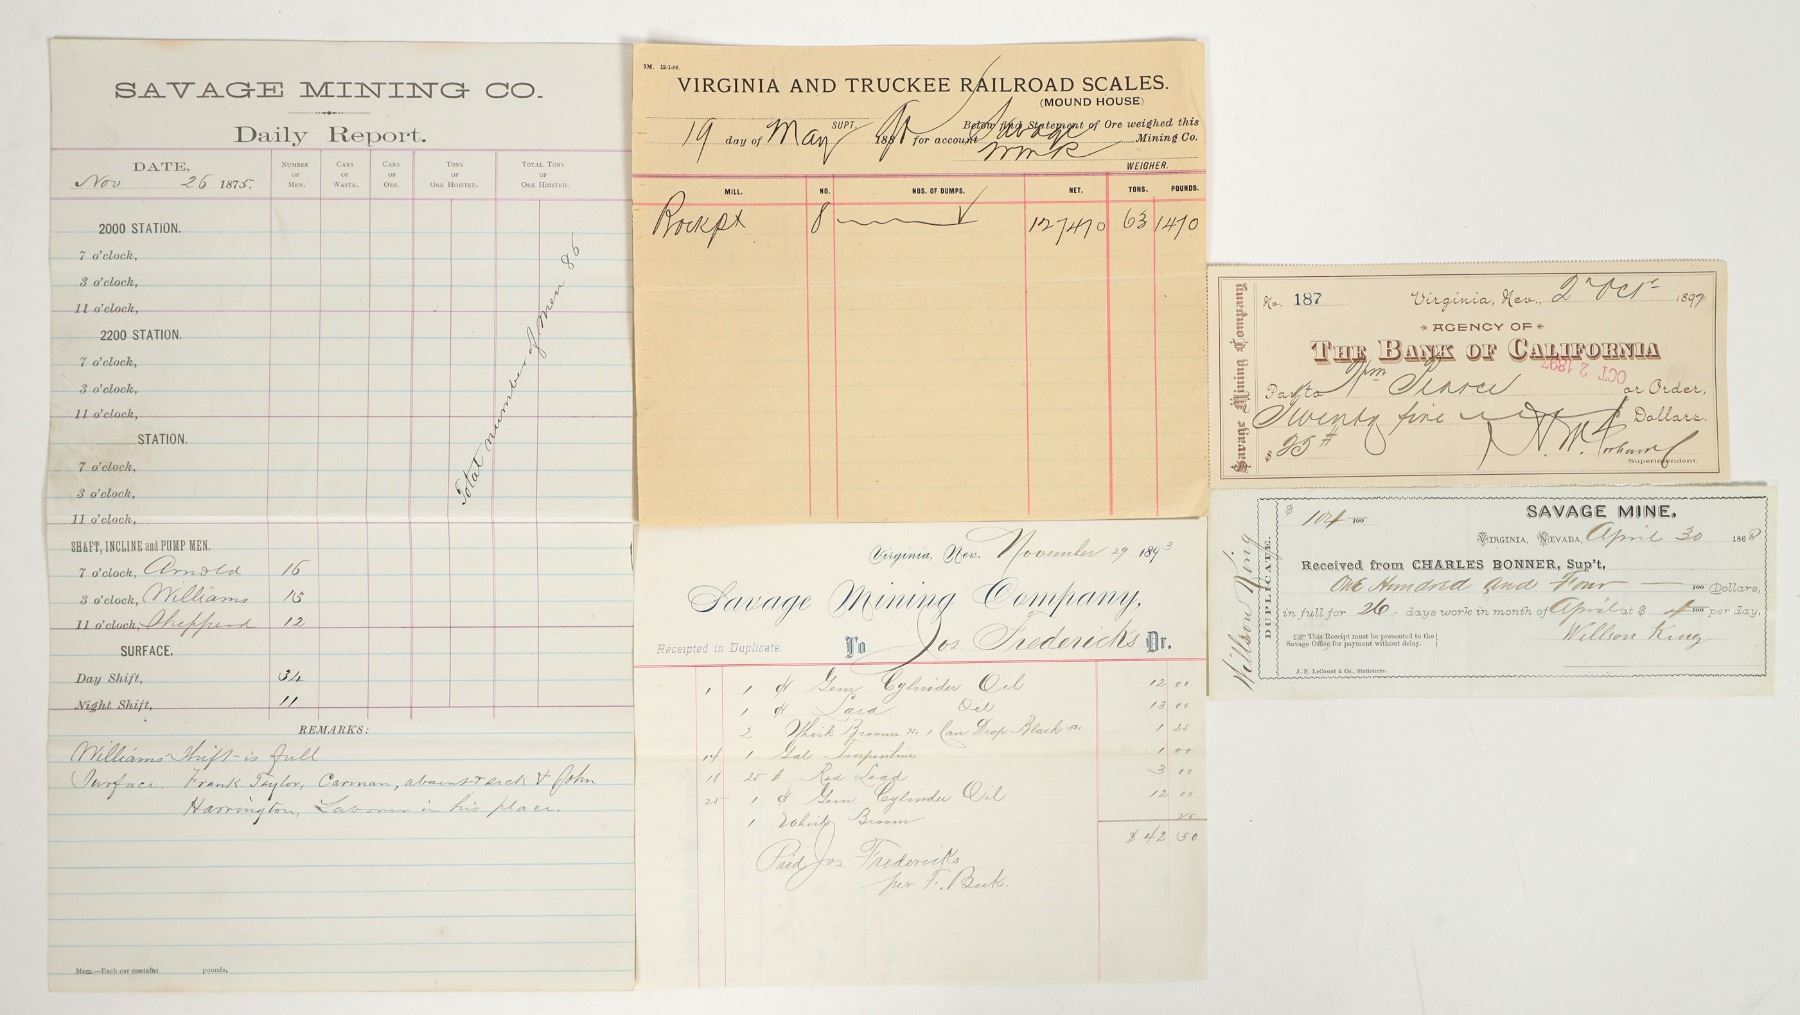 SAVAGE MINING CO.
Daily Report.
DATE, NUMBER OF MEN. CARS OF WASTE. CARS OF ORE. TONS OF ORE HOISTED. TOTAL TONS OF ORE HOISTED.
Nov 26 1875.
2000 STATION.
7 o'clock,
3 o'clock,
11 o'clock,
2200 STATION.
7 o'clock,
3 o'clock,
11 o'clock,
STATION.
7 o'clock,
3 o'clock,
11 o'clock,
Total number of Men 86
SHAFT, INCLINE and PUMP MEN.
7 o'clock, Arnold
3 o'clock, Williams
11 o'clock, 12
SURFACE.
Day Shift, 34
Night Shift, 11
REMARKS:
Williams Shift is full
Surface. Frank Taylor, Carman, absent & sick & John
Harrington, Laborer in his place.
Mem.—Each car contains pounds.
3M. 12-1-86.
VIRGINIA AND TRUCKEE RAILROAD SCALES.
(MOUND HOUSE)
SUPT.
Below find Statement of Ore weighed this
19 day of May 188 for account Savage Mining Co.
WEIGHER.
MILL. NO. NOS. OF DUMPS. NET. TONS. POUNDS.
Rockpt 8 127470 63 1470
Virginia, Nev. November 29 1893
Savage Mining Company,
Receipted in Duplicate. To Jos Fredericks Dr.
1 1 Gem Cylinder Oil 12 00
1 Lard Oil 13 00
2 Whisk Broom 1 Can Drop Black 1 25
14 1 Gal Turpentine 1 00
18 25 # Red Lead 3 00
25 1 Gem Cylinder Oil 12 00
1 Whisk Broom 25
$ 42 50
Paid Jos Fredericks
per F. Beck.
Savage Mining Company
No. 187 Virginia, Nev., 2 Oct 1897
AGENCY OF
THE BANK OF CALIFORNIA
OCT 2 1897
Pay to Wm Pearce or Order,
Twenty five Dollars.
$ 25
Superintendent.
Willson King
DUPLICATE.
$ 104 100
SAVAGE MINE.
VIRGINIA, NEVADA, April 30 1868
Received from CHARLES BONNER, Sup't,
One Hundred and Four 100 Dollars,
in full for 26 days work in month of April at $ 4 100 per day,
This Receipt must be presented to the
Savage Office for payment without delay.
Willson King
J. F. LeCount & Co., Stationers.